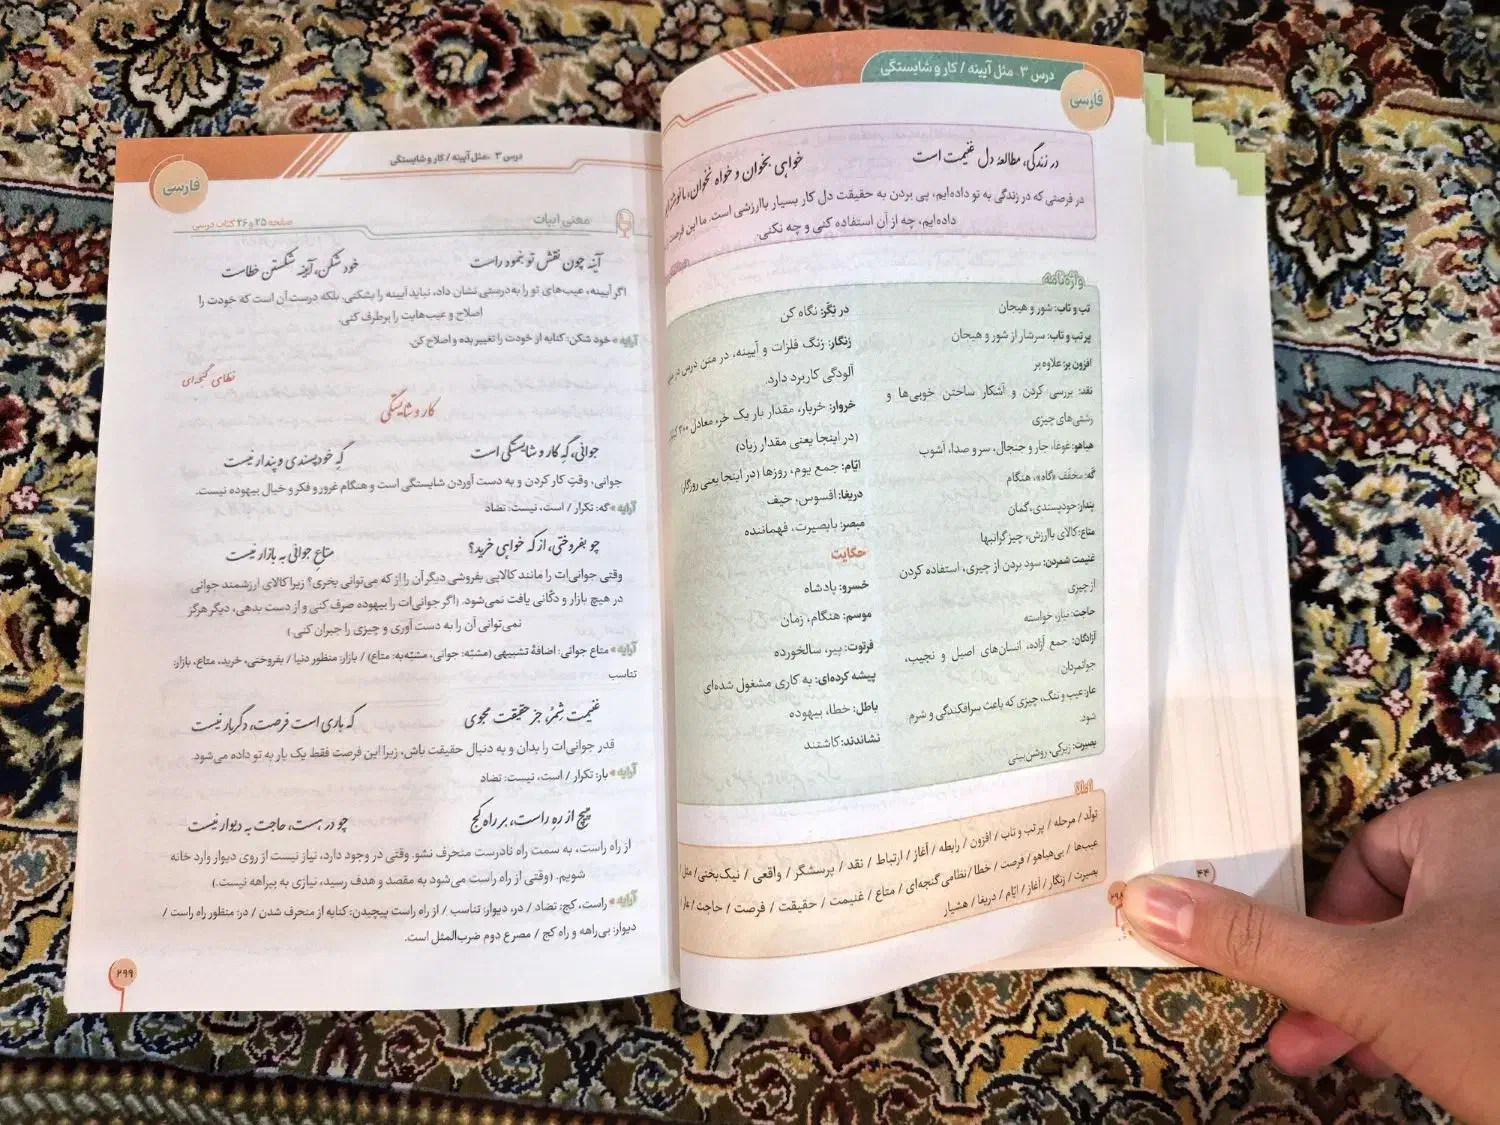 درس ۳ - مثل آیینه / کار و شایستگی
فارسی
در زندگی، مطالعهٔ دل غنیمت است
خواهی بخوان و خواه نخوان، ما نوشته‌ایم
در فرصتی که در زندگی به تو داده‌ایم، پی بردن به حقیقت دل کار بسیار باارزشی است. ما این فرصت
داده‌ایم، چه از آن استفاده کنی و چه نکنی.
واژه‌نامه
تب و تاب: شور و هیجان
پر تب و تاب: سرشار از شور و هیجان
افزون بر: علاوه بر
نقد: بررسی کردن و آشکار ساختن خوبی‌ها و
زشتی‌های چیزی
هیاهو: غوغا، جار و جنجال، سر و صدا، آشوب
گه: مخفّف «گاه»، هنگام
پندار: خودپسندی، گمان
متاع: کالای باارزش، چیز گرانبها
غنیمت شمردن: سود بردن از چیزی، استفاده کردن
از چیزی
حاجت: نیاز، خواسته
آزادگان: جمع آزاده، انسان‌های اصیل و نجیب،
جوانمردان
عار: عیب و ننگ، چیزی که باعث سرافکندگی و شرم
شود.
بصیرت: زیرکی، روشن‌بینی
در نگر: نگاه کن
زنگار: زنگ فلزات و آیینه، در متن درس در
آلودگی کاربرد دارد.
خروار: خربار، مقدار بار یک خر، معادل ۳۰۰
(در اینجا یعنی مقدار زیاد)
ایّام: جمع یوم، روزها (در اینجا یعنی روزگار)
دریغا: افسوس، حیف
مبصر: بابصیرت، فهماننده
حکایت
خسرو: پادشاه
موسم: هنگام، زمان
فرتوت: پیر، سالخورده
پیشه کرده‌ای: به کاری مشغول شده‌ای
باطل: خطا، بیهوده
نشاندند: کاشتند
املا
تولّد / مرحله / پر تب و تاب / افزون / رابطه / آغاز / ارتباط / نقد / پرسشگر / واقعی / نیک‌بختی / مثل
عیب‌ها / بی‌هیاهو / فرصت / خطا / نظامی گنجه‌ای / متاع / غنیمت / حقیقت / فرصت / حاجت / عار
بصیرت / زنگار / آغاز / ایّام / دریغا / هشیار
۲۹۸
۴۴
درس ۳ - مثل آیینه / کار و شایستگی
فارسی
معنی ابیات
صفحه ۲۵ و ۲۶ کتاب درسی
آینه چون نقش تو بنمود راست
خود شکن، آیینه شکستن خطاست
اگر آیینه، عیب‌های تو را به‌درستی نشان داد، نباید آیینه را بشکنی. بلکه درست آن است که خودت را
اصلاح و عیب‌هایت را برطرف کنی.
آرایه خود شکن: کنایه از خودت را تغییر بده و اصلاح کن.
نظامی گنجه‌ای
کار و شایستگی
جوانی، گه کار و شایستگی است
گه خودپسندی و پندار نیست
جوانی، وقتِ کار کردن و به دست آوردن شایستگی است و هنگام غرور و فکر و خیال بیهوده نیست.
آرایه گه: تکرار / است، نیست: تضاد
چو بفروختی، از که خواهی خرید؟
متاعِ جوانی به بازار نیست
وقتی جوانی‌ات را مانند کالایی بفروشی دیگر آن را از که می‌توانی بخری؟ زیرا کالای ارزشمند جوانی
در هیچ بازار و دکّانی یافت نمی‌شود. (اگر جوانی‌ات را بیهوده صرف کنی و از دست بدهی، دیگر هرگز
نمی‌توانی آن را به دست آوری و چیزی را جبران کنی.)
آرایه متاع جوانی: اضافهٔ تشبیهی (مشبّه: جوانی، مشبّه‌به: متاع) / بازار: منظور دنیا / بفروختی، خرید، متاع، بازار:
تناسب
غنیمت شِمُر، جز حقیقت مجوی
که باری است فرصت، دگر بار نیست
قدر جوانی‌ات را بدان و به دنبال حقیقت باش، زیرا این فرصت فقط یک بار به تو داده می‌شود.
آرایه بار: تکرار / است، نیست: تضاد
مپیچ از رهِ راست، بر راه کج
چو در هست، حاجت به دیوار نیست
از راه راست، به سمت راه نادرست منحرف نشو. وقتی در وجود دارد، نیاز نیست از روی دیوار وارد خانه
شویم. (وقتی از راه راست می‌شود به مقصد و هدف رسید، نیازی به بیراهه نیست.)
آرایه راست، کج: تضاد / در، دیوار: تناسب / از راه راست پیچیدن: کنایه از منحرف شدن / در: منظور راه راست /
دیوار: بی‌راهه و راه کج / مصرع دوم ضرب‌المثل است.
۲۹۹